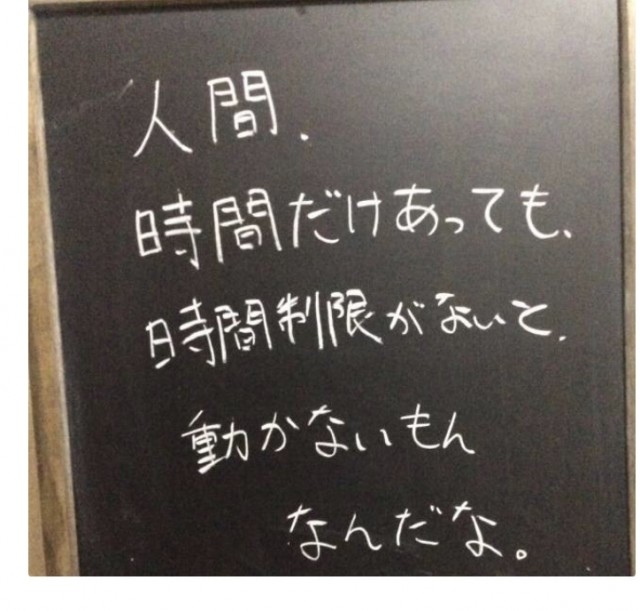 人間、
時間だけあっても、
時間制限がないと、
動かないもん
なんだな。